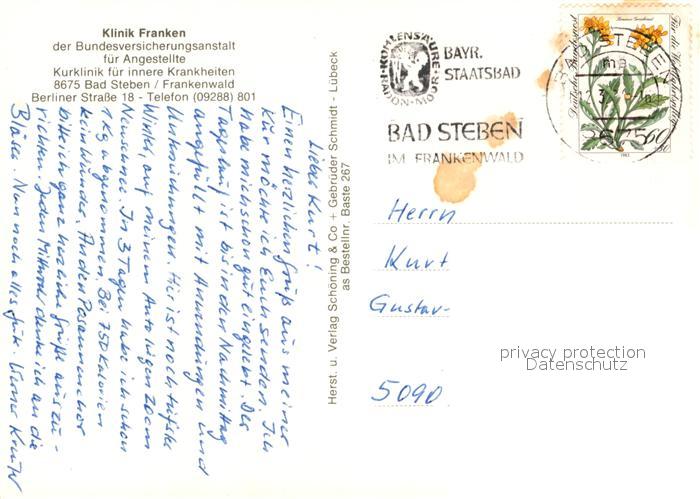 Klinik Franken
der Bundesversicherungsanstalt
für Angestellte
Kurklinik für innere Krankheiten
8675 Bad Steben / Frankenwald
Berliner Straße 18 - Telefon (09288) 801
Liebe Kurt!
Einen herzlichen Gruß aus meiner
Kur möchte ich Euch senden. Ich
habe mich schon gut eingelebt. Der
Tagplan ist bis in den Nachmittag
angefüllt mit Anwendungen und
Untersuchungen. Hier ist noch tiefster
Winter, auf meinem Auto liegen 20 cm
Neuschnee. In 3 Tagen habe ich schon
1 kg abgenommen. Bei 750 Kalorien
kein Wunder. An den Posaunenchor
bitte ich ganz herzliche Grüße auszu-
richten. Jeden Mittwoch denke ich an die
Bläser. Nun noch alles Gute.
Herst. u. Verlag Schöning & Co + Gebrüder Schmidt - Lübeck
as Bestellnr. Baste 267
KOHLENSÄURE
RADON-MOOR
BAYR.
STAATSBAD
BAD STEBEN
IM FRANKENWALD
BAD STEBEN
8675
Deutsche Bundespost
60
Herrn
Kurt
Gustav-
5090
privacy protection
Datenschutz